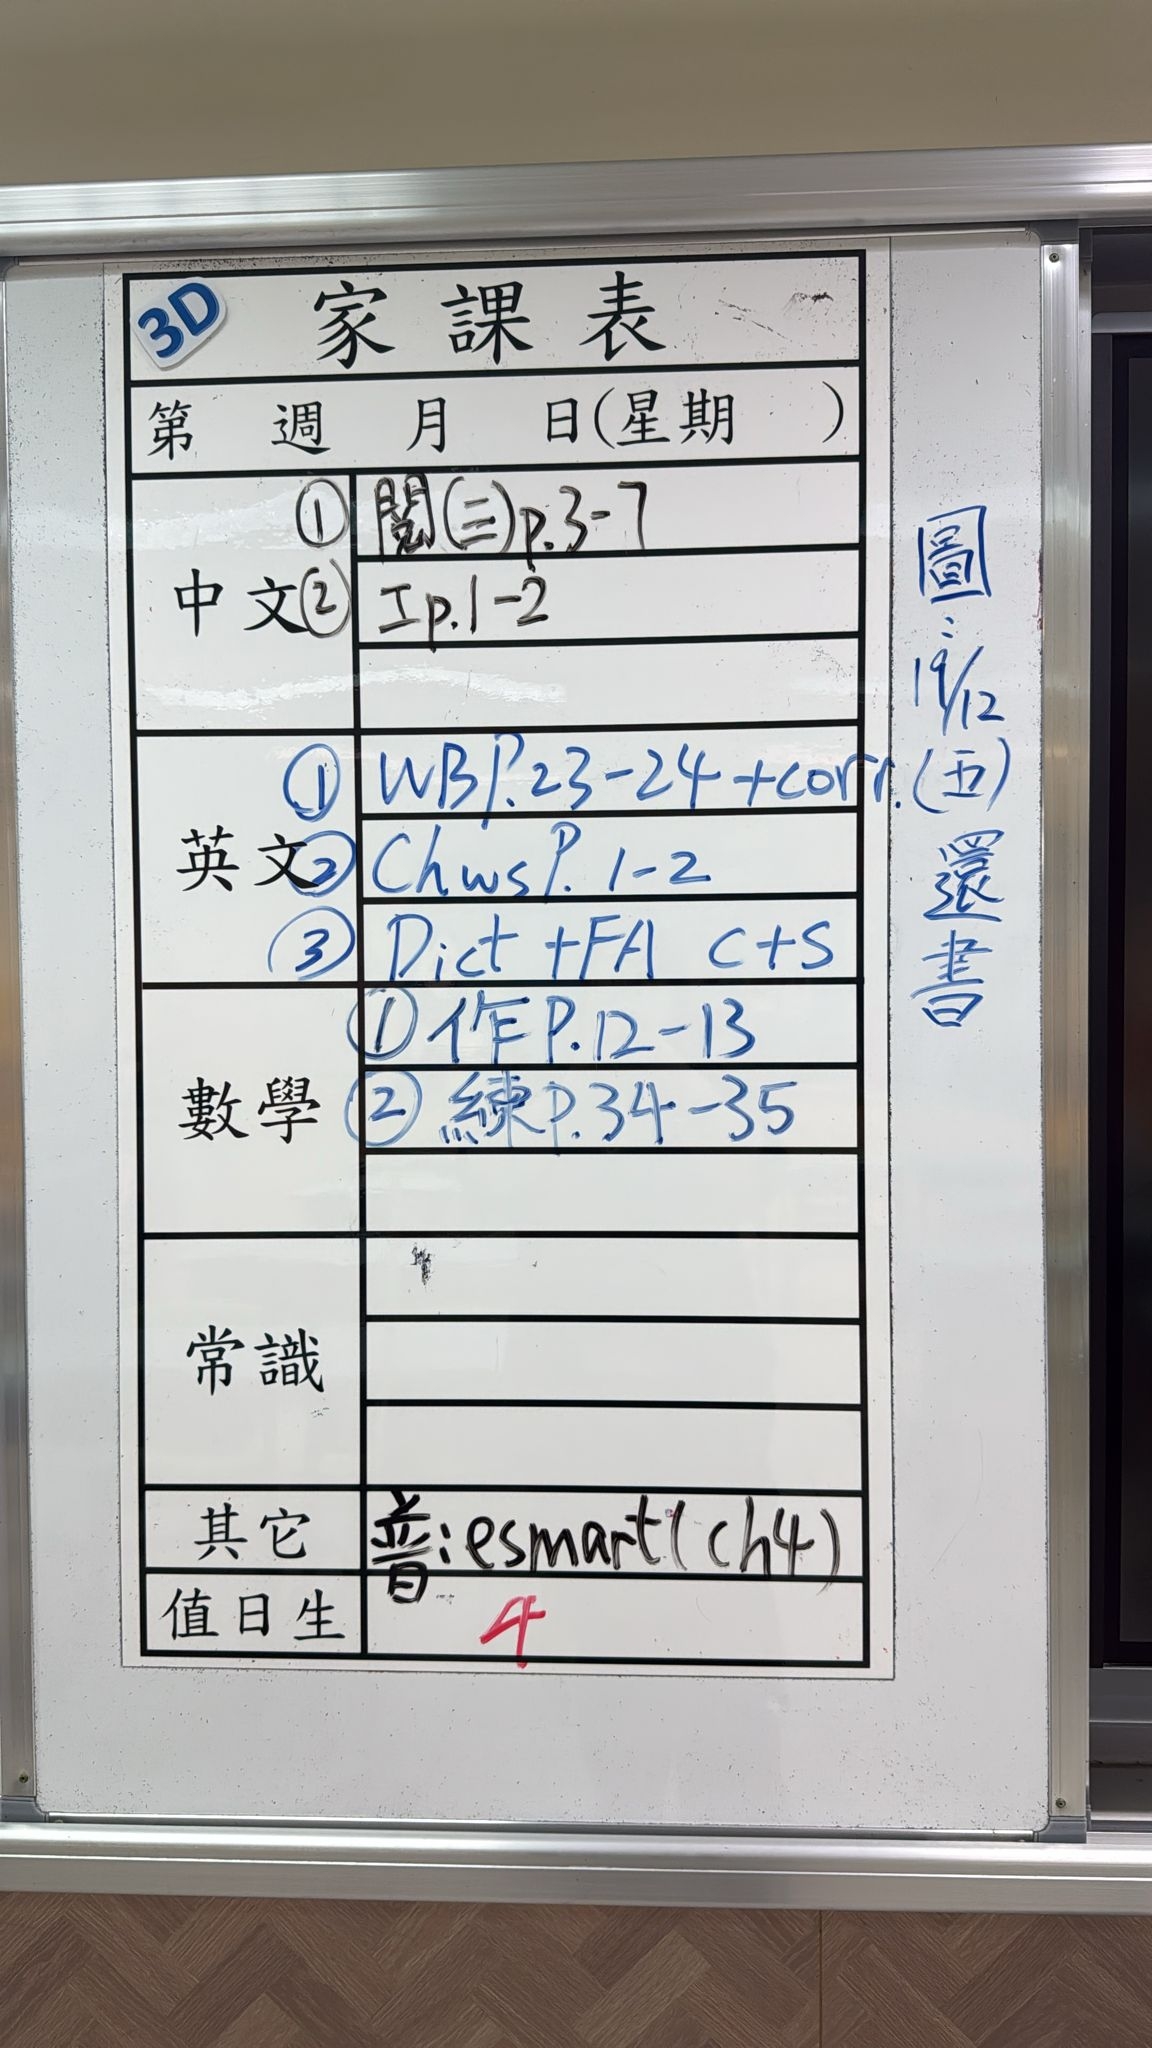 3D 家課表
第 週 月 日(星期 )
中文
① 閱(三)p.3-7
② 工p.1-2
英文
① WB P.23-24 +corr.
② Ch ws P. 1-2
③ Dict +FA C+S
數學
① 作P.12-13
② 練P.34-35
常識
其它 普:esmart(ch4)
值日生 4
圖:19/12(五)還書